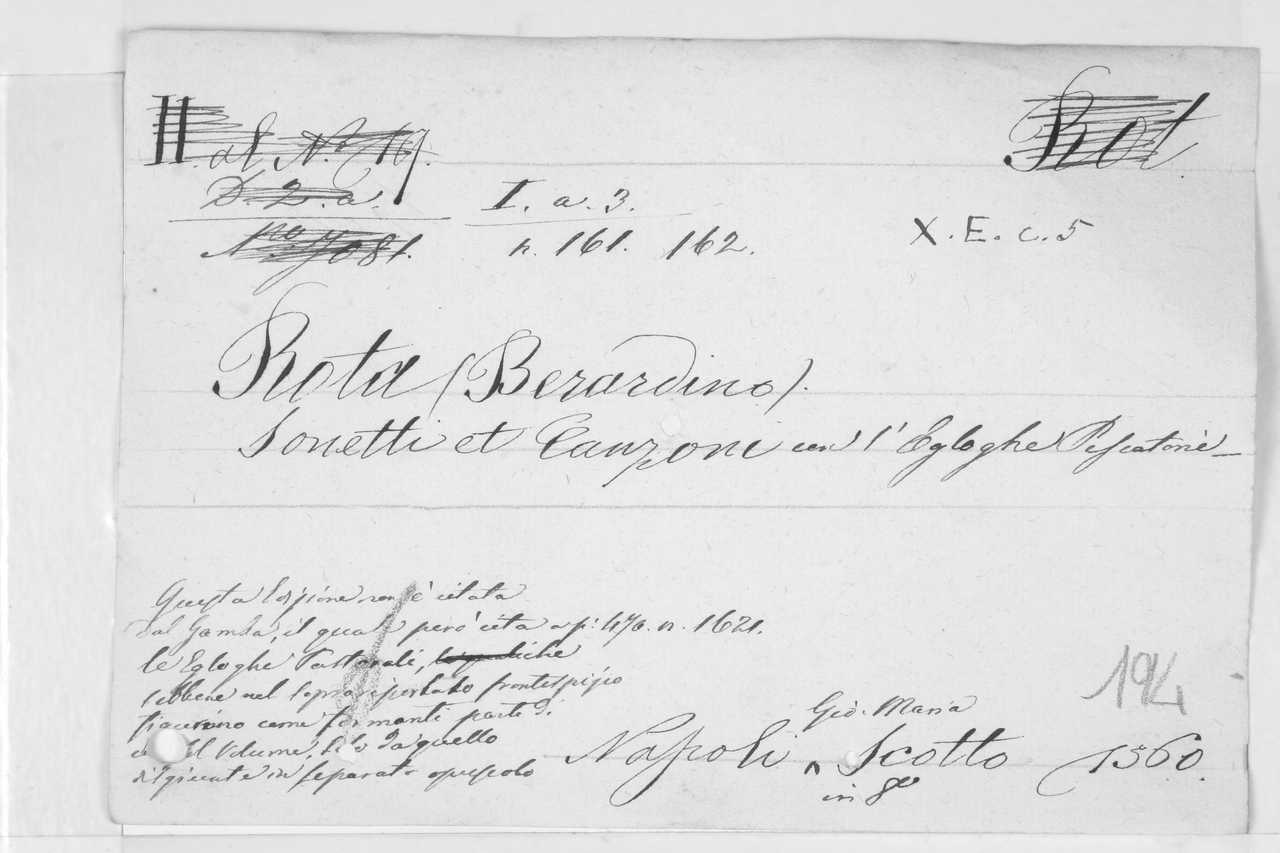 II. al N.º 169.
Rot.
D. 2. a.
I. a. 3.
Nro 7081.
n. 161. 162.
X. E. c. 5
Rota (Berardino).
Sonetti et Canzoni con l'Egloghe Pescatorie_
Questa Edizione non è citata
dal Gamba, il quale però cita a p: 470. n. 1621.
le Egloghe Pastorali,
sebbene nel sopra riportato frontespizio
come formanti parte di
Volume, da quello
disgiunte in separato opuscolo
194
Gio. Maria
Napoli ^ Scotto 1560.
in 8º